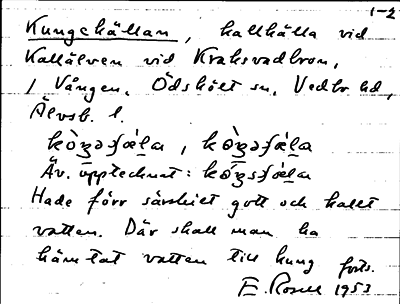 1-2
Kungskällan, kallkälla vid
Kollälven vid Kroksvadbron,
i Vången. Ödskölt sn, Vedbo hd,
Älvsb. l.
Äv. upptecknat:
Hade förr särskilt gott och kallt
vatten. Där skall man ha
hämtat vatten till kung forts.
E. Rosell 1953